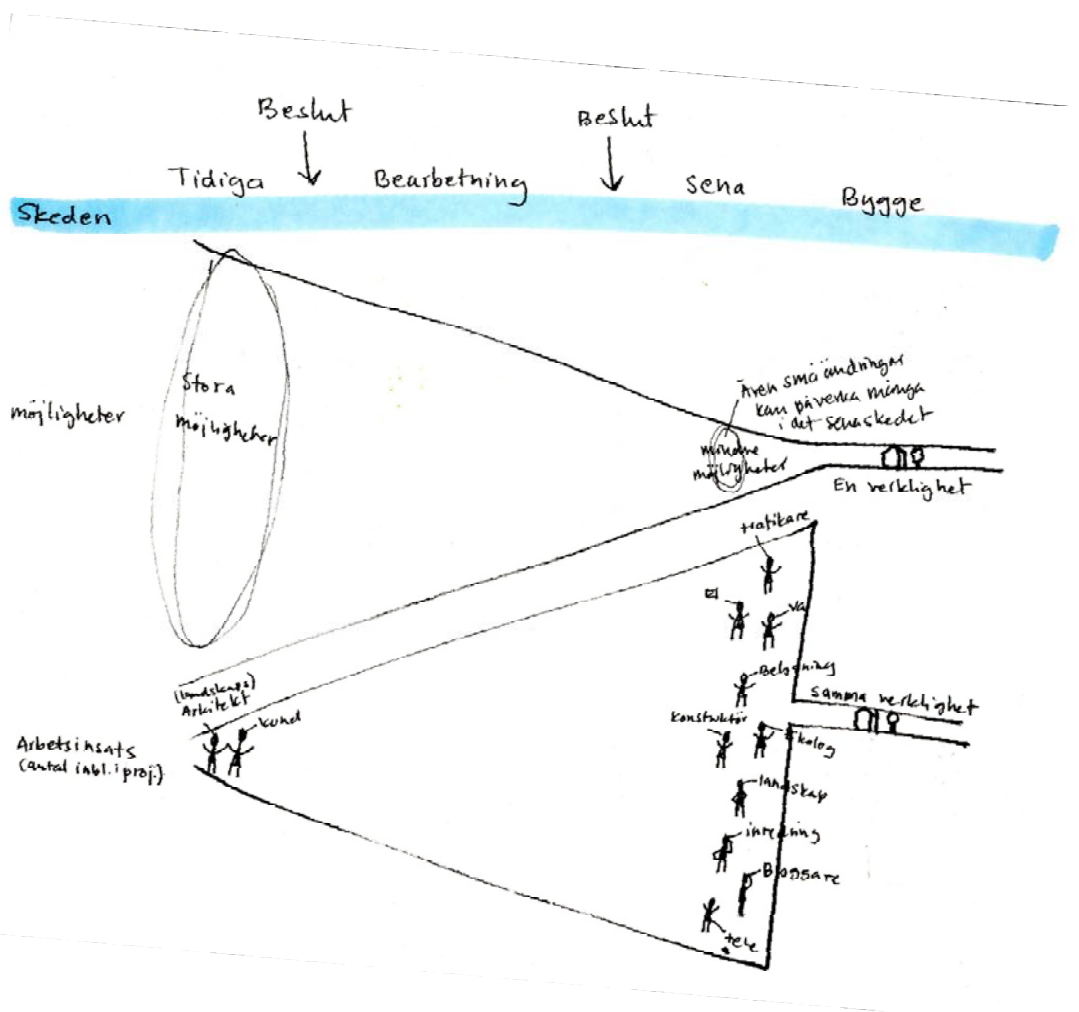 Beslut
Beslut
Tidiga
Bearbetning
Sena
Bygge
Skeden
möjligheter
Stora
möjligheter
Även små ändringar
kan påverka många
i det sena skedet
mindre
möjligheter
En verklighet
trafikare
el
VA
Belysning
konstruktör
Ekolog
landskap
inredning
Byggare
tele
samma verklighet
(landskaps)
Arkitekt
kund
Arbetsinsats
(antal inbl. i proj.)